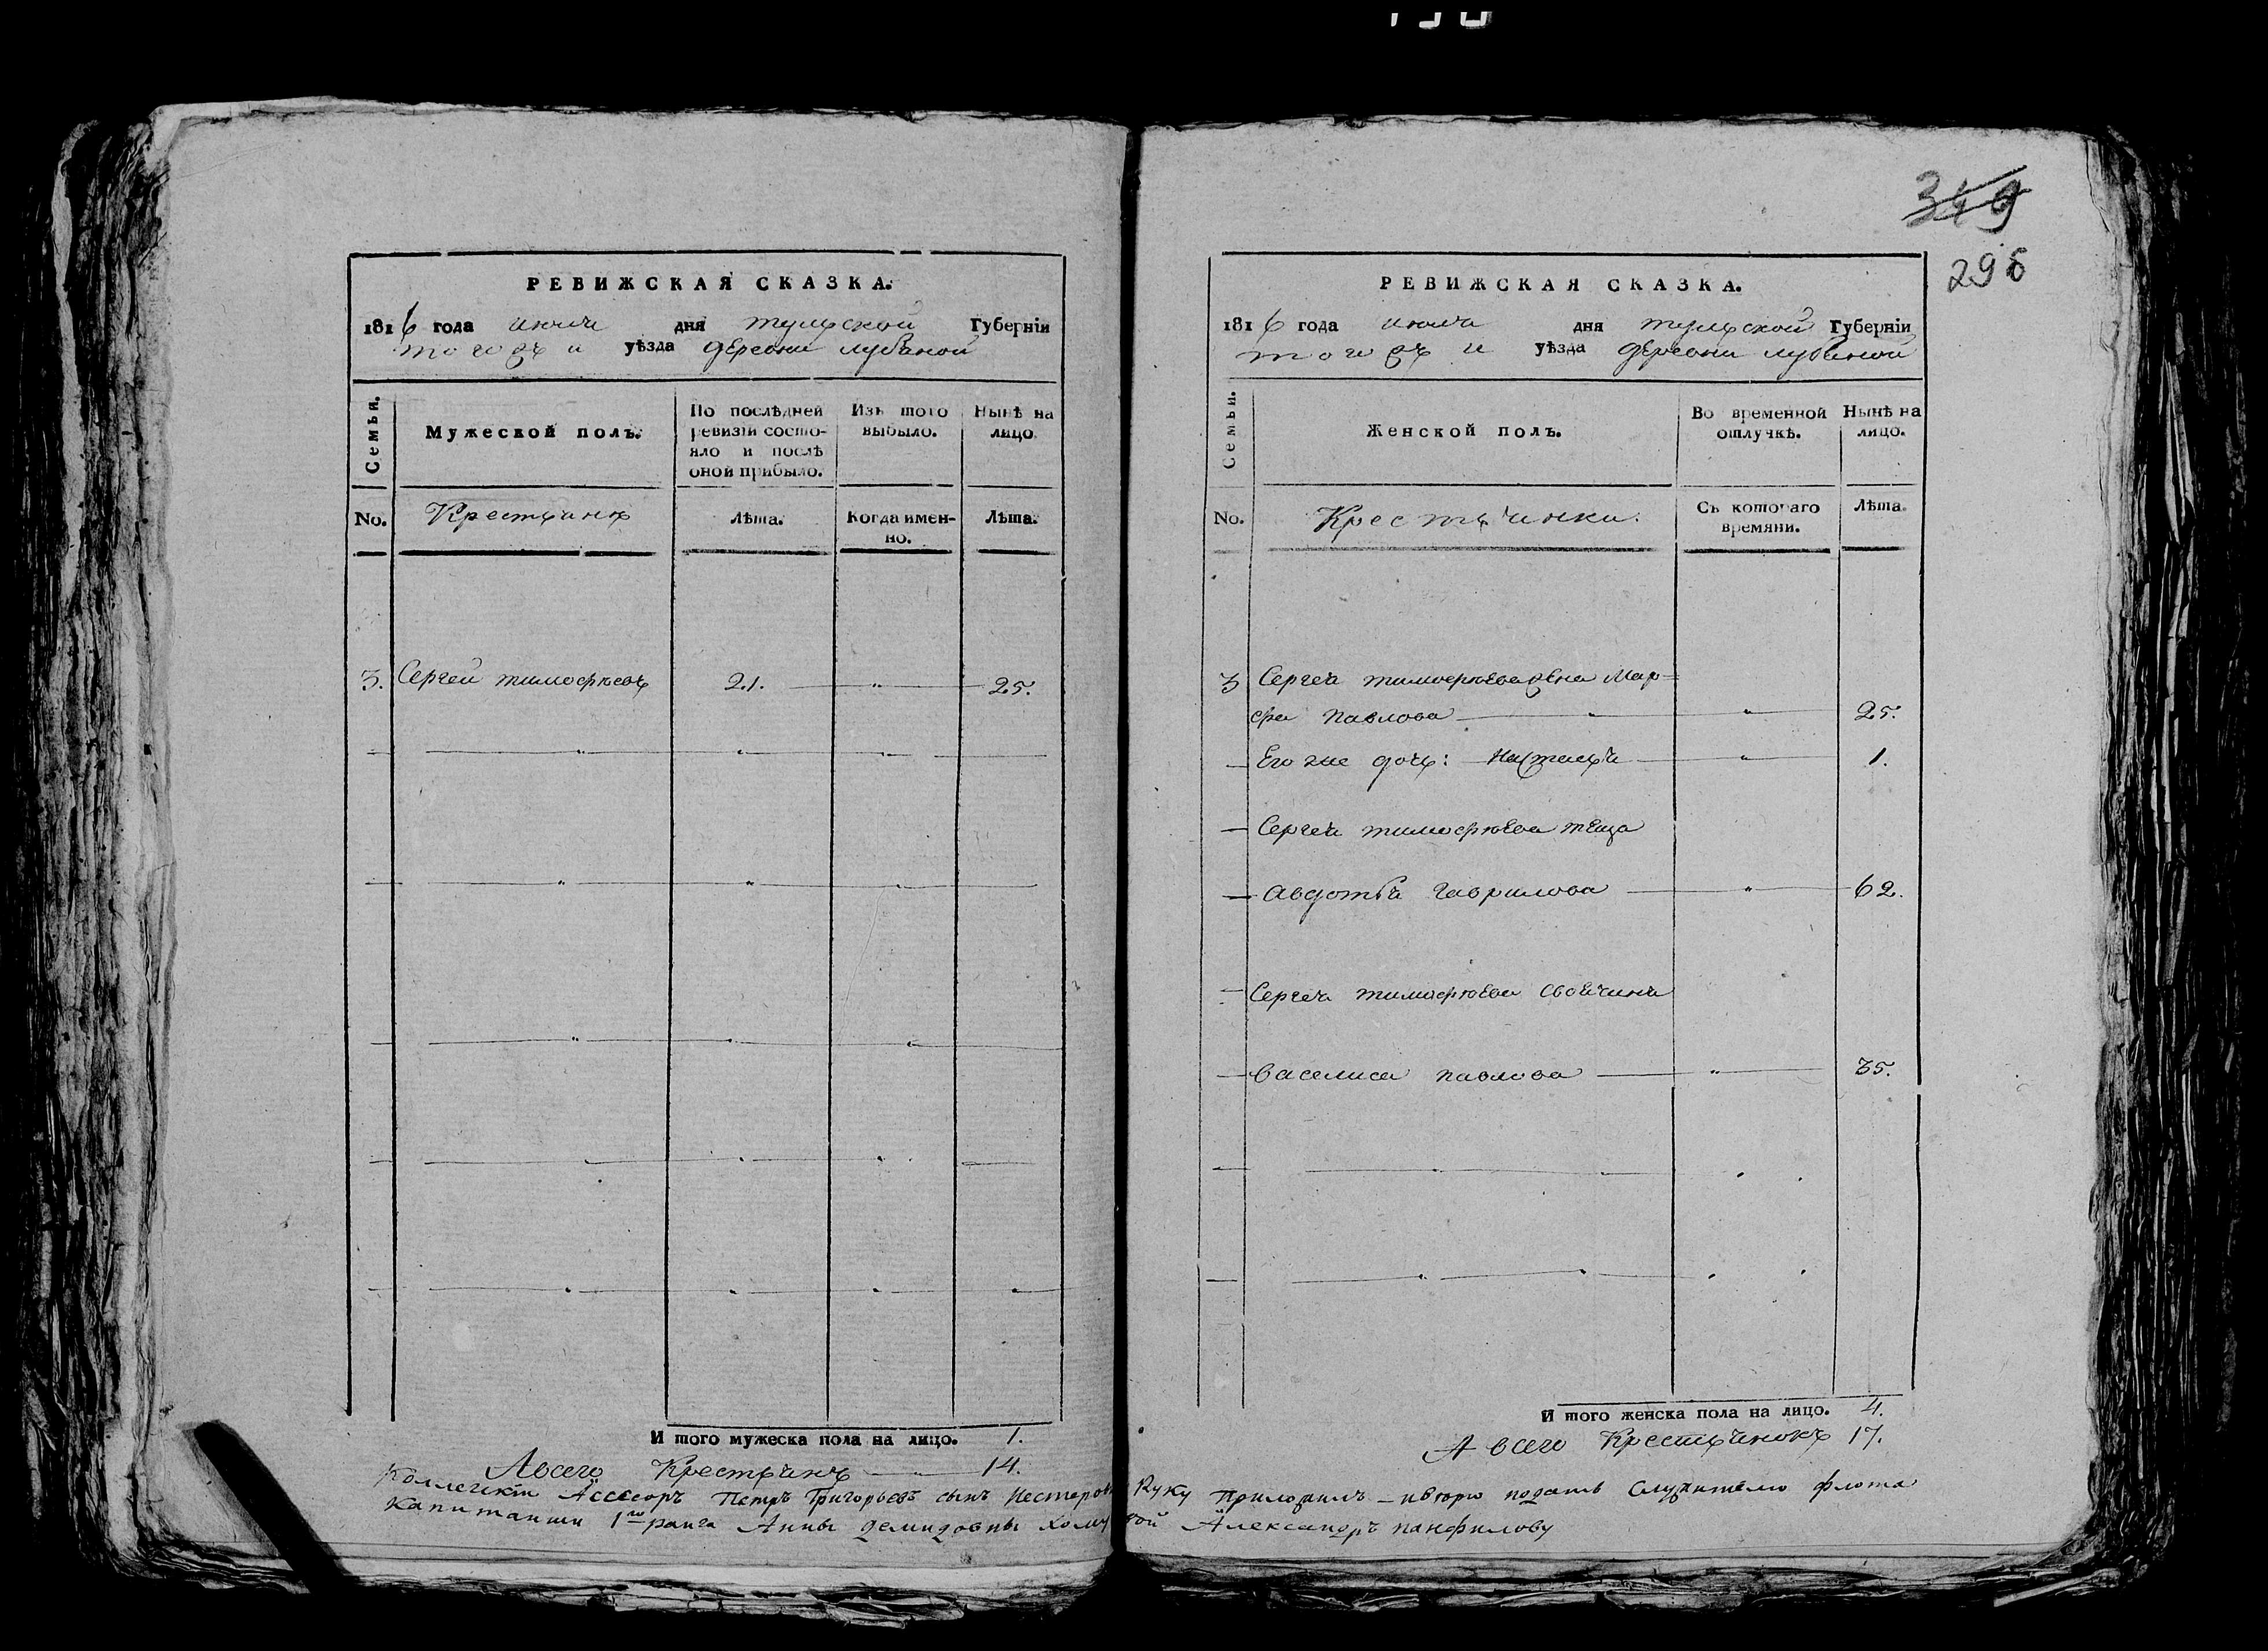 349
296
РЕВИЖСКАЯ СКАЗКА.
1816 года июля дня тульской Губернiи
тогожъ и уѣзда деревни лубяной
Семьи.
Мужеской полъ.
По послѣдней ревизiи состояло и послѣ оной прибыло.
Изъ того выбыло.
Нынѣ на лицо.
No.
Крестьянъ
Лѣта.
Когда именно.
Лѣта.
3. Сергей тимофѣевъ 21. 25.
И того мужеска пола на лицо. 1.
Авсего Крестьянъ 14.
РЕВИЖСКАЯ СКАЗКА.
1816 года июля дня тульской Губернiи
тогожъ и уѣзда деревни лубяной
Семьи.
Женской полъ.
Во временной отлучкѣ.
Нынѣ на лицо.
No.
Крестьянки.
Съ котораго времяни.
Лѣта.
3 Сергея тимофѣева жена Мар=
фа Павлова 25.
Его же дочь: Настасья 1.
Сергея тимофѣева теща
Авдотья Гаврилова 62.
Сергея тимофѣева своячина
Василиса павлова 35.
И того женска пола на лицо. 4.
А всего Крестьянокъ 17.
Коллегскiй Ассесоръ Петръ Григорьевъ сынъ Нестеровъ Руку Приложилъ флота
Капитанши 1го ранга Анны демидовны Александръ панфилову